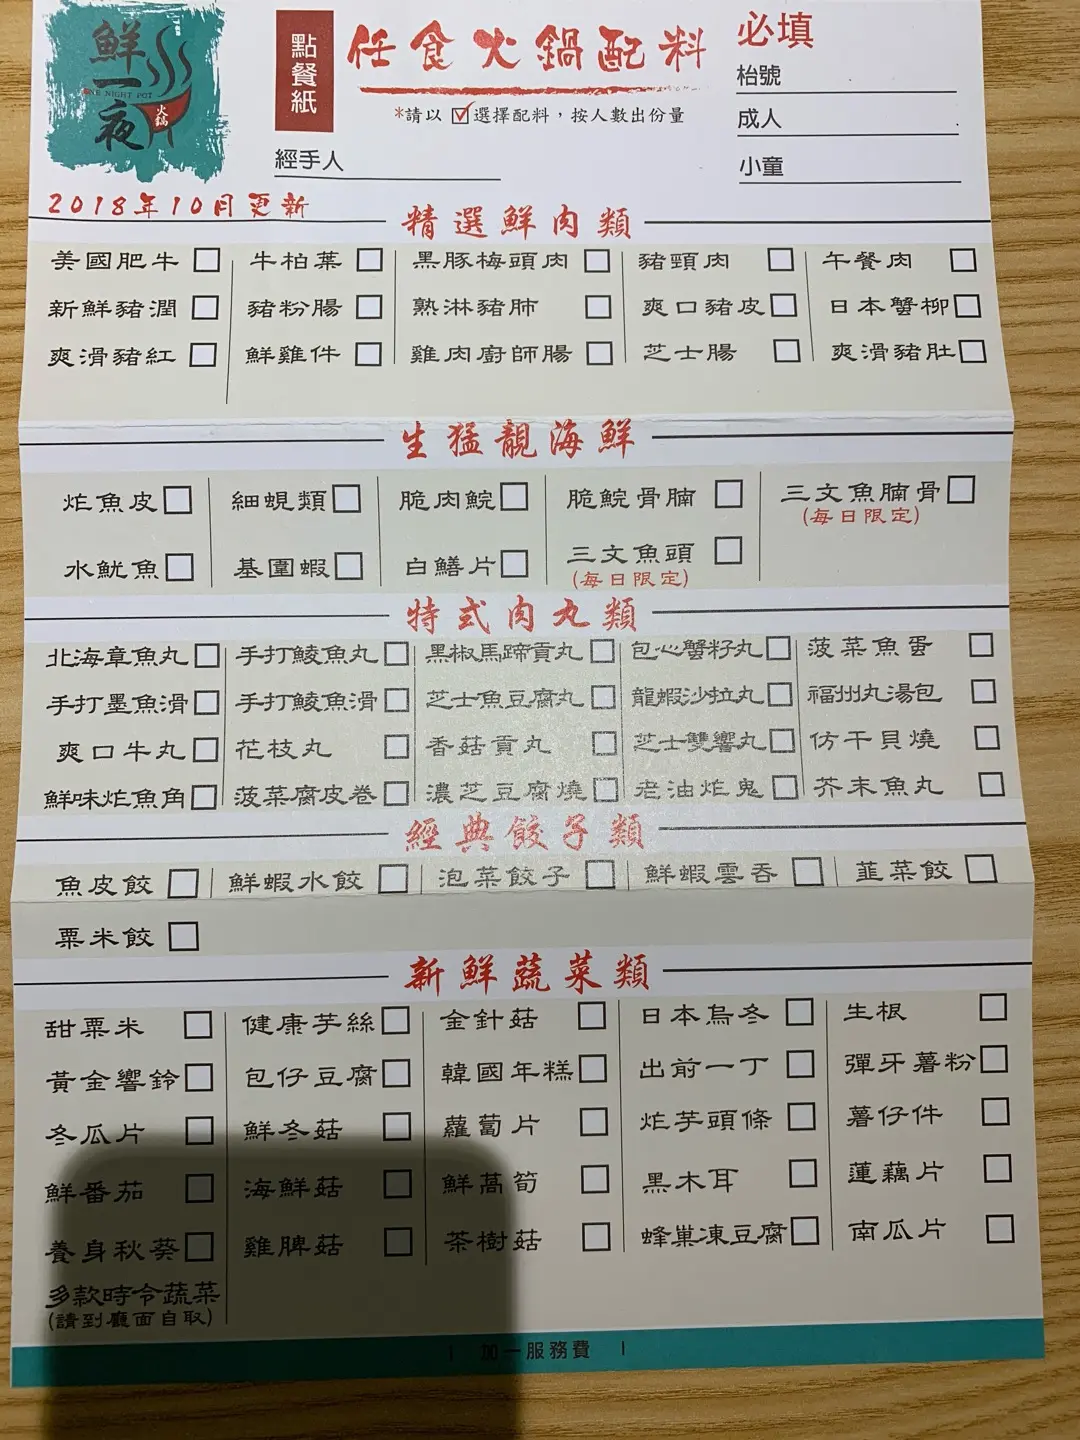 鮮一夜
ONE NIGHT POT
火鍋
點餐紙
任食火鍋配料
*請以 ☑ 選擇配料,按人數出份量
經手人
必填
枱號
成人
小童
2018年10月更新
精選鮮肉類
美國肥牛 □ 牛柏葉 □ 黑豚梅頭肉 □ 豬頸肉 □ 午餐肉 □
新鮮豬潤 □ 豬粉腸 □ 熟淋豬肺 □ 爽口豬皮 □ 日本蟹柳 □
爽滑豬紅 □ 鮮雞件 □ 雞肉廚師腸 □ 芝士腸 □ 爽滑豬肚 □
生猛靚海鮮
炸魚皮 □ 細蜆類 □ 脆肉鯇 □ 脆鯇骨腩 □ 三文魚腩骨 □
(每日限定)
水魷魚 □ 基圍蝦 □ 白鱔片 □ 三文魚頭 □
(每日限定)
特式肉丸類
北海章魚丸 □ 手打鯪魚丸 □ 黑椒馬蹄貢丸 □ 包心蟹籽丸 □ 菠菜魚蛋 □
手打墨魚滑 □ 手打鯪魚滑 □ 芝士魚豆腐丸 □ 龍蝦沙拉丸 □ 福州丸湯包 □
爽口牛丸 □ 花枝丸 □ 香菇貢丸 □ 芝士雙響丸 □ 仿干貝燒 □
鮮味炸魚角 □ 菠菜腐皮卷 □ 濃芝豆腐燒 □ 老油炸鬼 □ 芥末魚丸 □
經典餃子類
魚皮餃 □ 鮮蝦水餃 □ 泡菜餃子 □ 鮮蝦雲吞 □ 韮菜餃 □
粟米餃 □
新鮮蔬菜類
甜粟米 □ 健康芋絲 □ 金針菇 □ 日本烏冬 □ 生根 □
黃金響鈴 □ 包仔豆腐 □ 韓國年糕 □ 出前一丁 □ 彈牙薯粉 □
冬瓜片 □ 鮮冬菇 □ 蘿蔔片 □ 炸芋頭條 □ 薯仔件 □
鮮番茄 □ 海鮮菇 □ 鮮萵筍 □ 黑木耳 □ 蓮藕片 □
養身秋葵 □ 雞脾菇 □ 茶樹菇 □ 蜂巢凍豆腐 □ 南瓜片 □
多款時令蔬菜
(請到廳面自取)
| 加一服務費 |